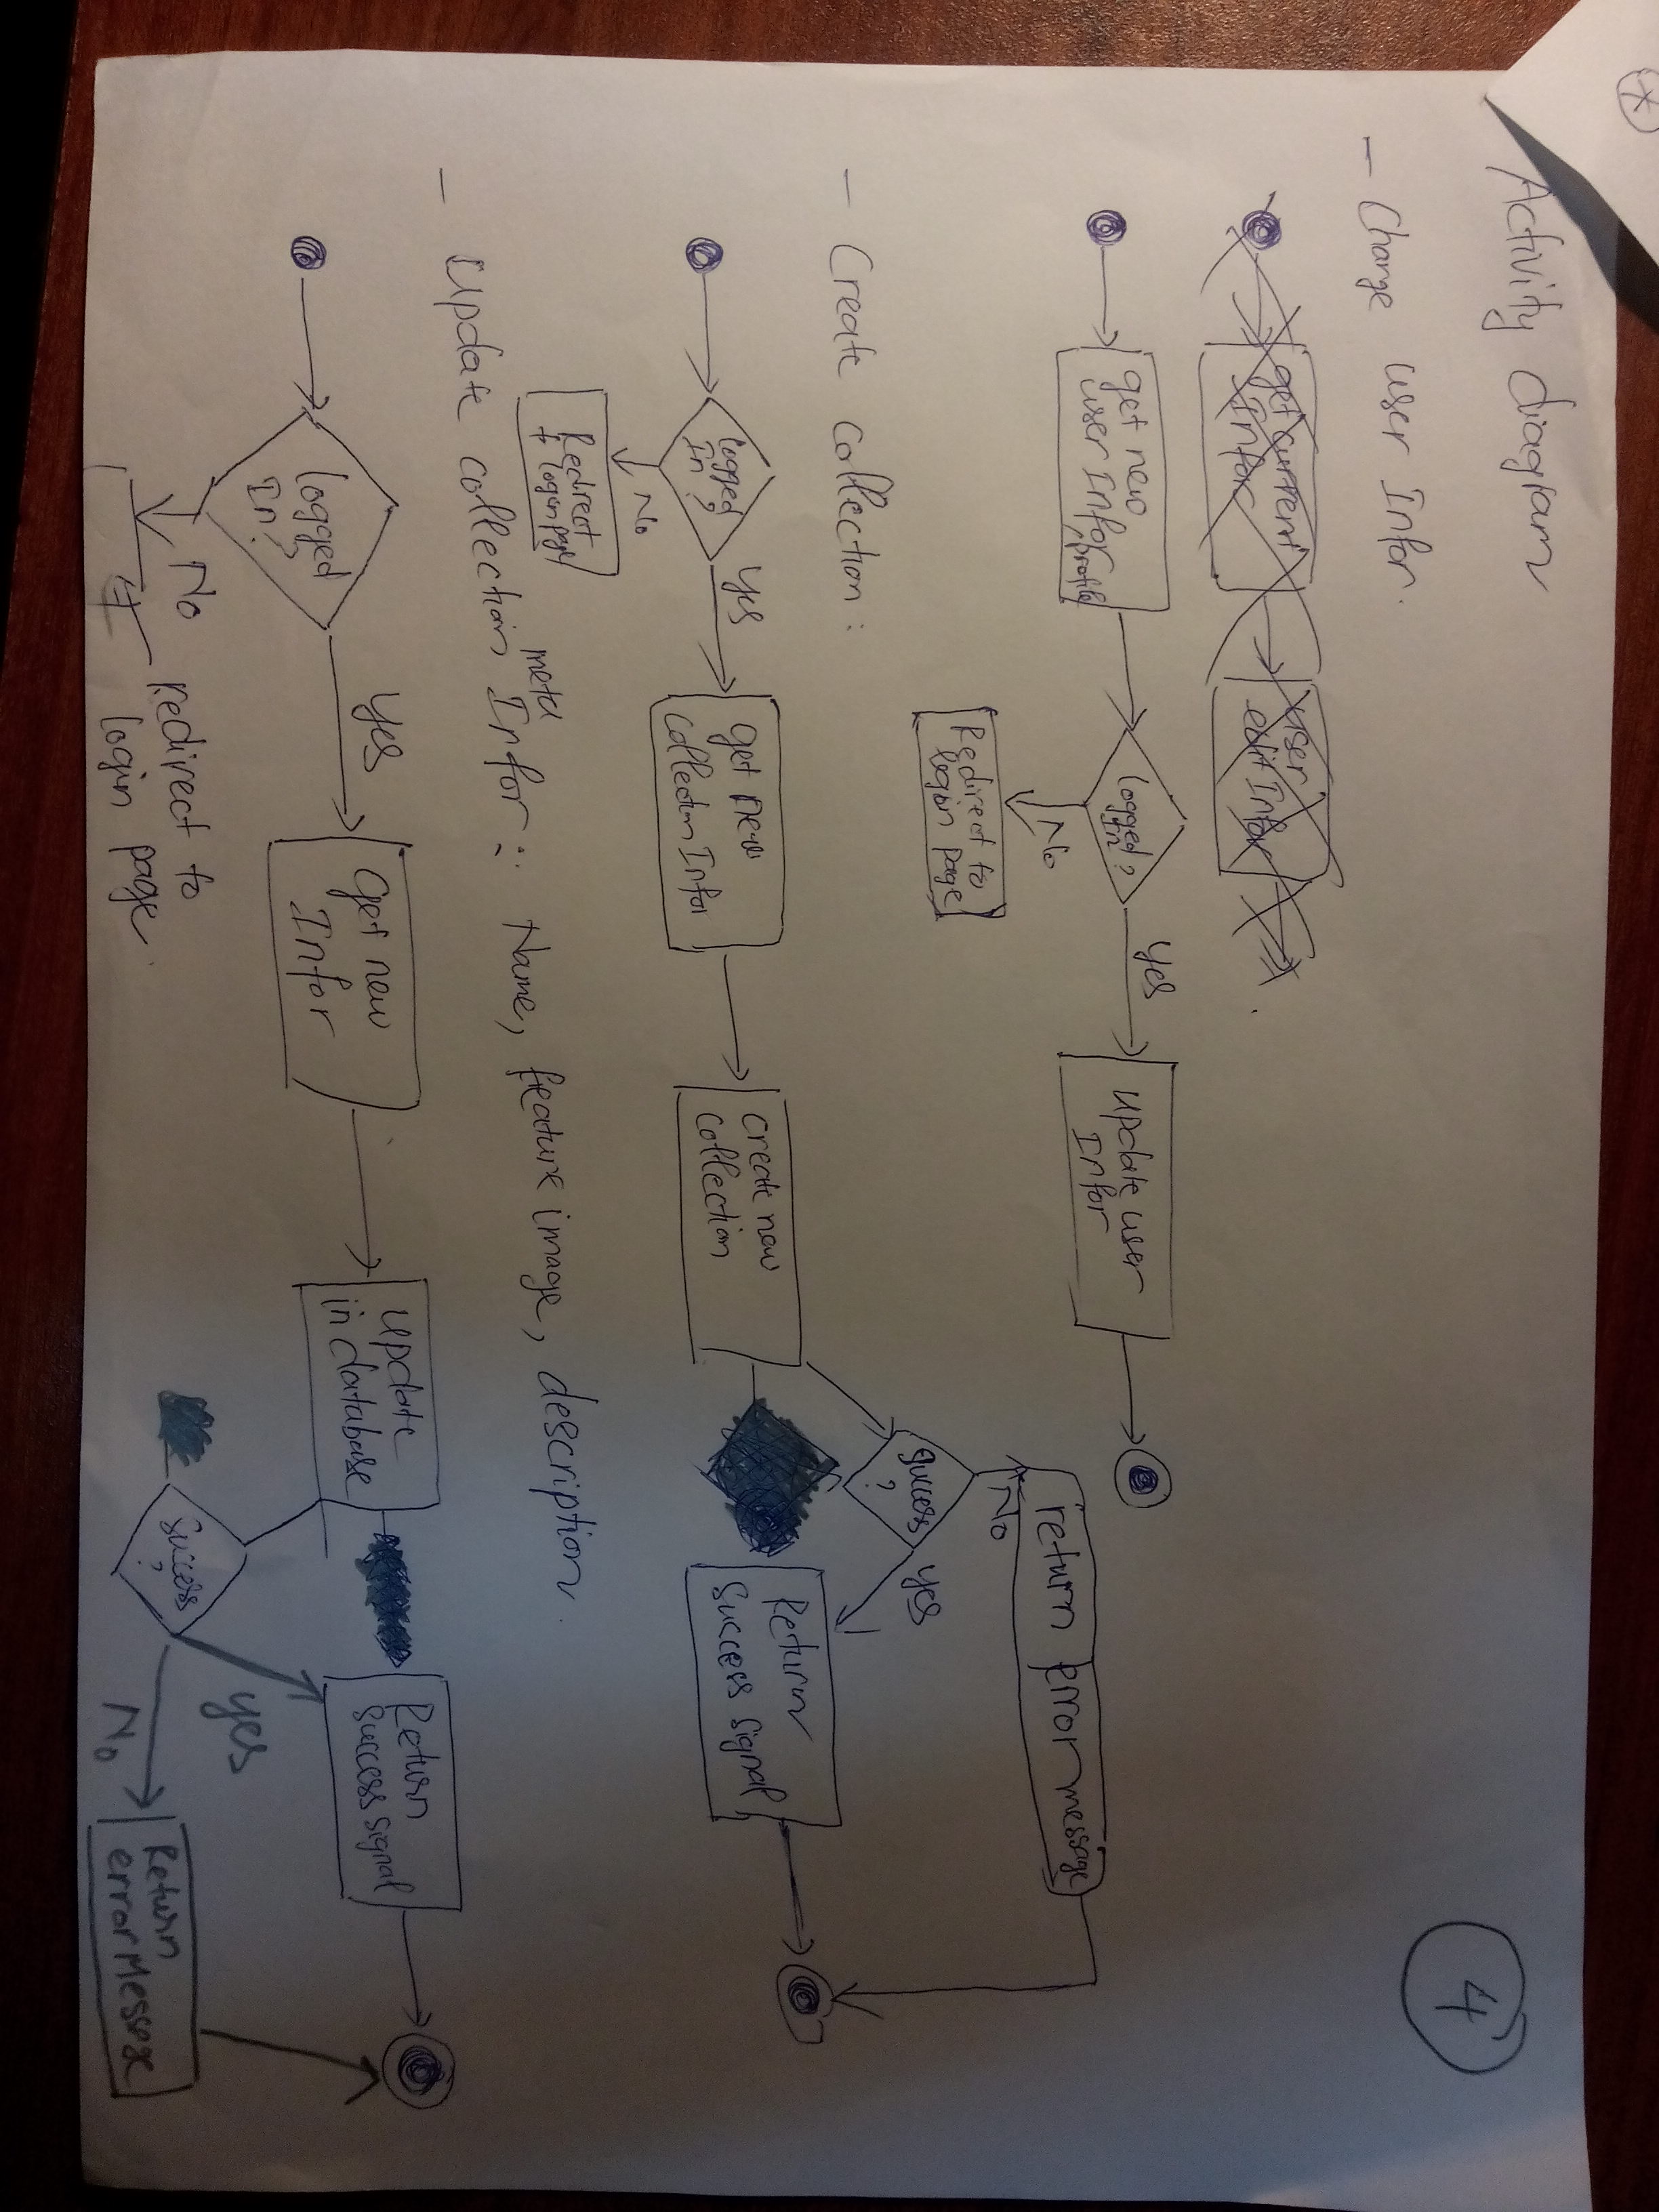 Activity diagram
4
- Change user Infor.
get current
Infor
user
edit Infor
get new
user Infor
profile
logged
In?
Yes
No
Redirect to
login page
update user
Infor
- Create collection:
logged
In?
Yes
No
Redirect
t login page
get new
collection Infor
create new
collection
success
?
No
return error message
yes
Return
success signal
- Update collection meta Infor: Name, feature image, description.
logged
In?
Yes
No
redirect to
login page.
Get new
Infor
update
in database
success
?
yes
No
Return
success signal
Return
error Message